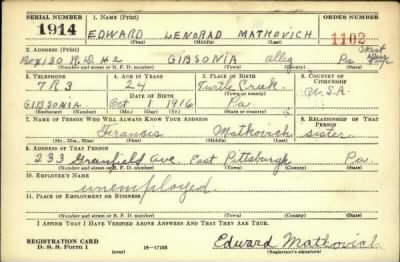 SERIAL NUMBER 1. Name (Print) ORDER NUMBER
1914 EDWARD LENORAD MATKOVICH 1102
(First) (Middle) (Last)
2. Address (Print)
Box 130 R.D. #2 GIBSONIA Alleg Pa
(Number and street or R. F. D. number) (Town) (County) (State)
3. Telephone 4. Age in Years 5. Place of Birth 6. Country of Citizenship
7 R 3 24 Turtle Creek U.S.A.
Date of Birth (Town or county)
GIBSONIA Oct 1 1916 Pa.
(Exchange) (Number) (Mo.) (Day) (Yr.) (State or country)
7. Name of Person Who Will Always Know Your Address 8. Relationship of That Person
Francis Matkovich sister
(Mr., Mrs., Miss) (First) (Middle) (Last)
9. Address of That Person
233 Greenfield Ave. East Pittsburgh Pa.
(Number and street or R. F. D. number) (Town) (County) (State)
10. Employer's Name
unemployed.
11. Place of Employment or Business
(Number and street or R. F. D. number) (Town) (County) (State)
I Affirm That I Have Verified Above Answers and That They Are True.
REGISTRATION CARD
D. S. S. Form 1 (over) 16—17105 Edward Matkovich
(Registrant's signature)